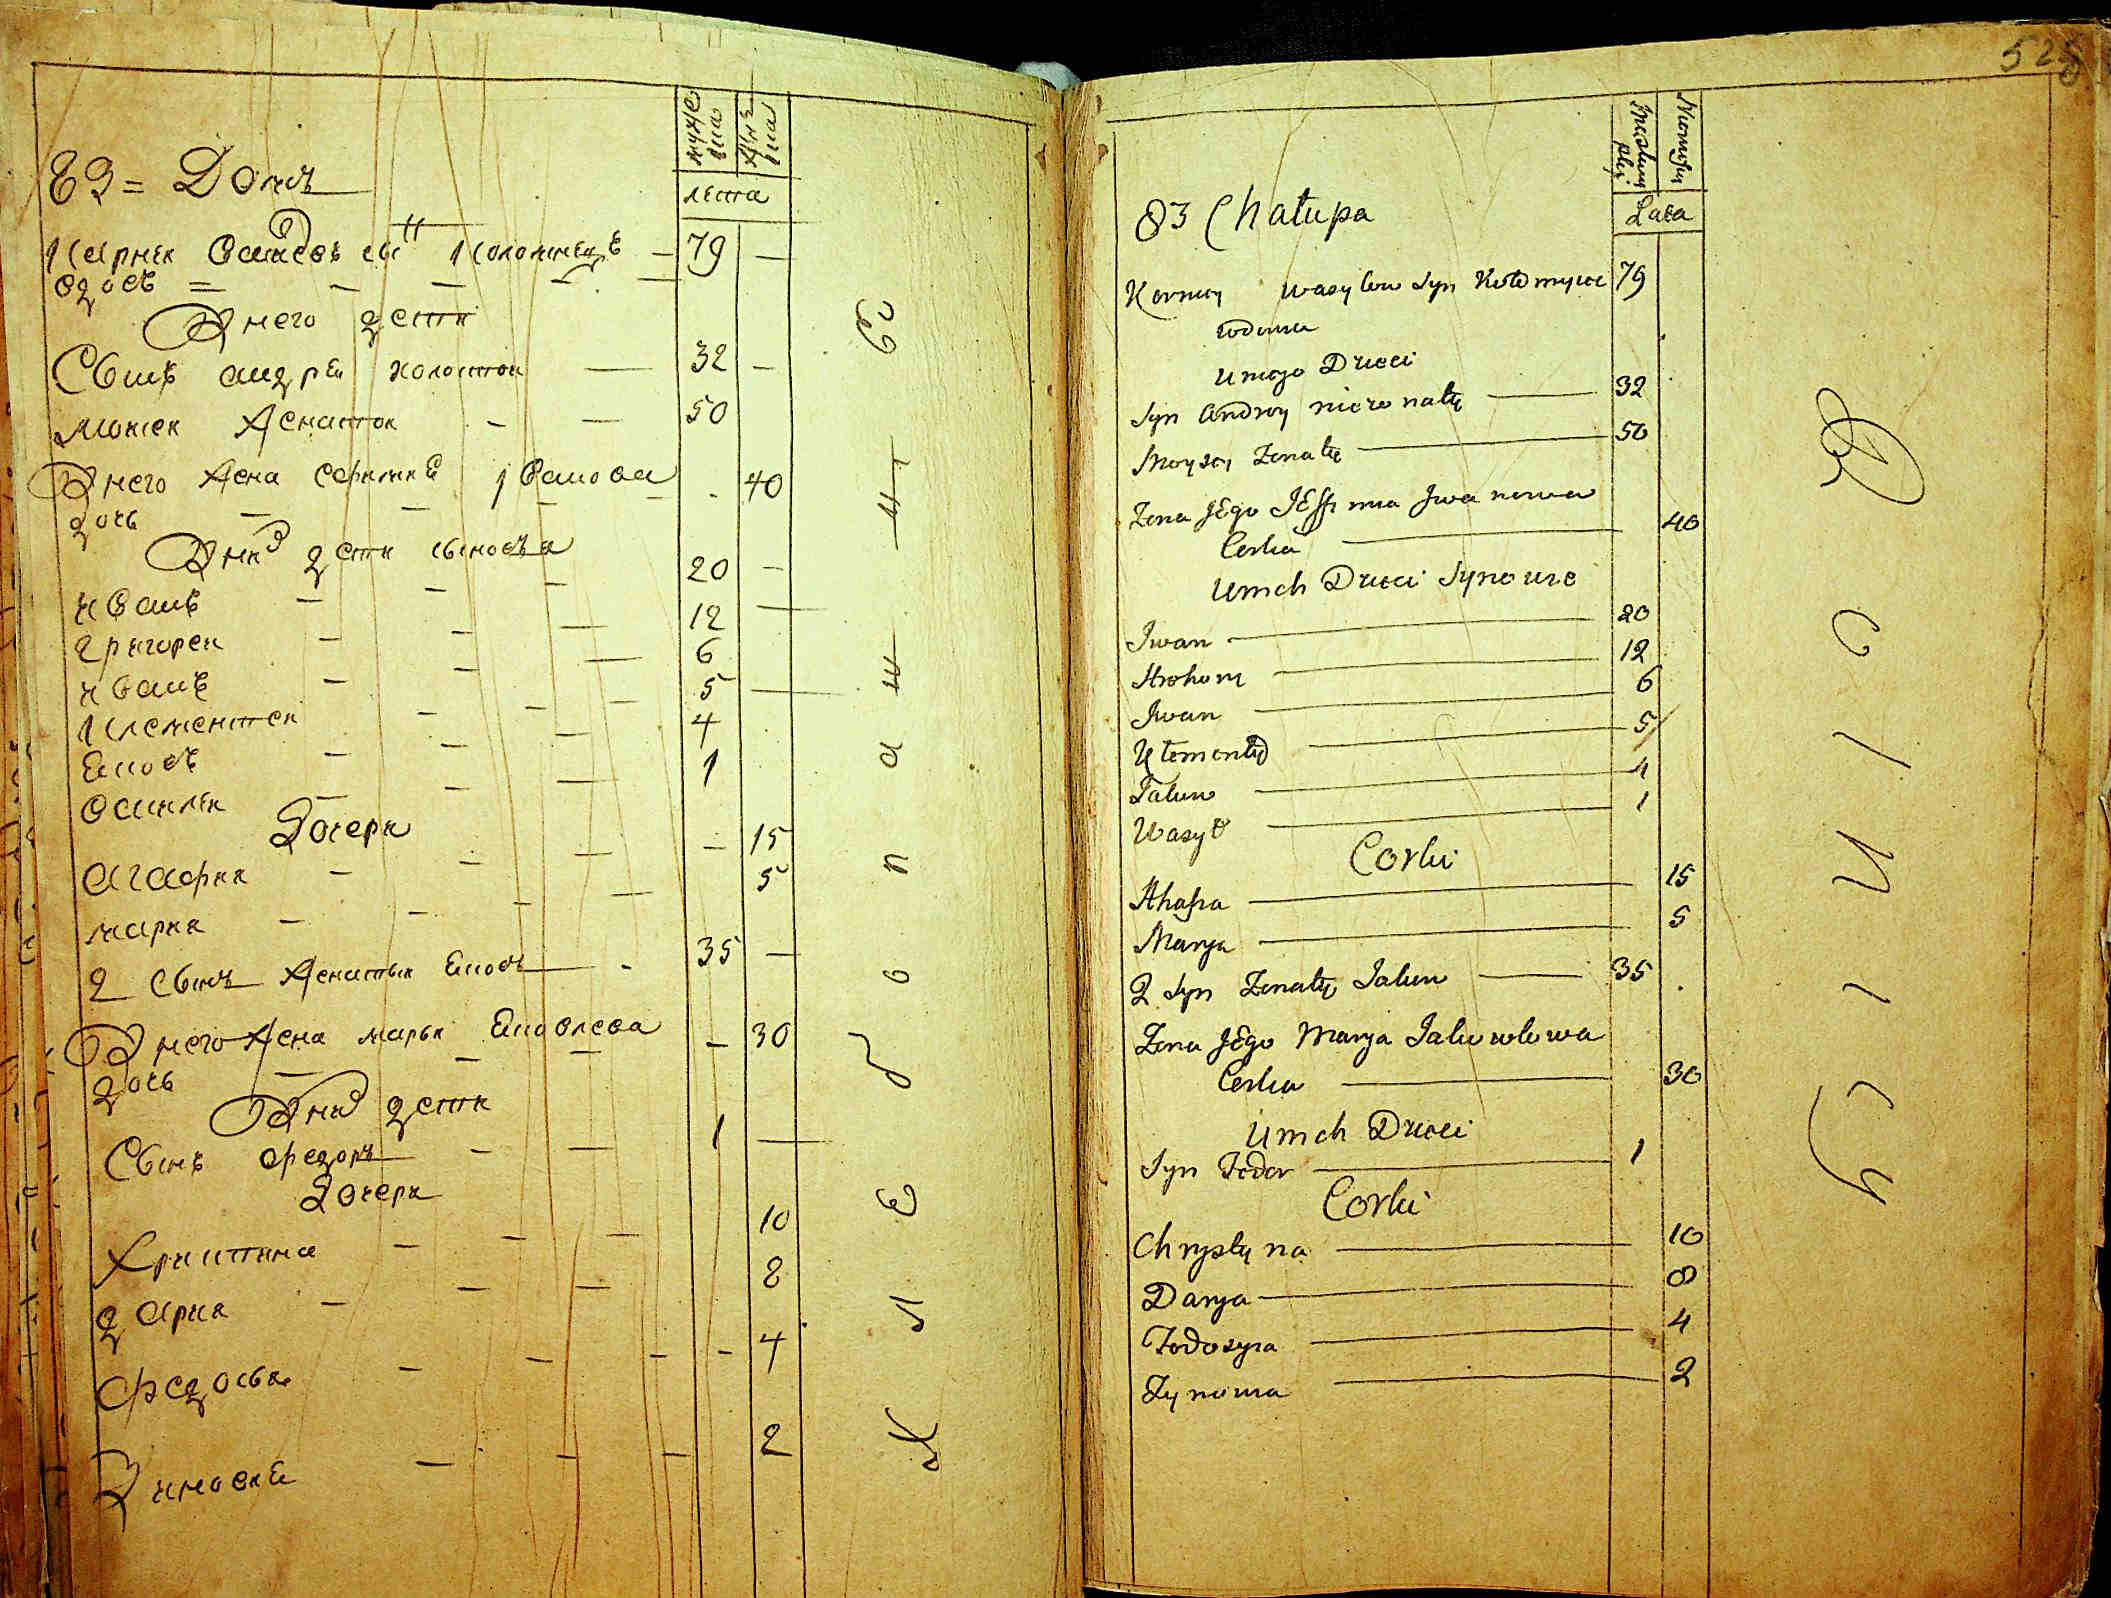 мужеска
женска
лета
83 = Домъ
Карней Василевъ снъ Коломиецъ — 79 —
вдовъ
У него дети
Сынъ андрей холостой — 32 —
Моисей женатой — 50
У него жена Ефимия Иванова 40
дочь
У них дети сыновья
иванъ 20 —
григорей 12 —
иванъ 6
Клементей 5 —
Яковъ 4
василей 1
Дочери
агафия — 15
мария 5
2 Сынъ женатый Яковъ — 35 —
У него жена марья Яковлева — 30
дочь
У них дети
Сынъ федоръ 1 —
Дочери
Христина 10
дария 8
федосья — 4
Зиновия 2
525
Męskiey płci
Niewieściey
Lata
83 Chałupa
Korney Wasylow Syn Kołomyiec 79
wdowiec
U niego Dzieci
Syn Andrey nieżonaty — 32
Moysey Żonaty — 50
Żona Jego Jeffimia Iwanowa
Corka — 40
U nich Dzieci Synowie
Iwan — 20
Hrehory — 12
Iwan — 6
Klementy — 5
Jakow — 4
Wasyl — 1
Corki
Ahafia — 15
Marya — 5
2 Syn Żonaty Jakow — 35
Żona Jego Marya Jakowlowa
Corka — 30
U nich Dzieci
Syn Fedor — 1
Corki
Chrystyna — 10
Darya — 8
Fedosyia — 4
Zynowia — 2